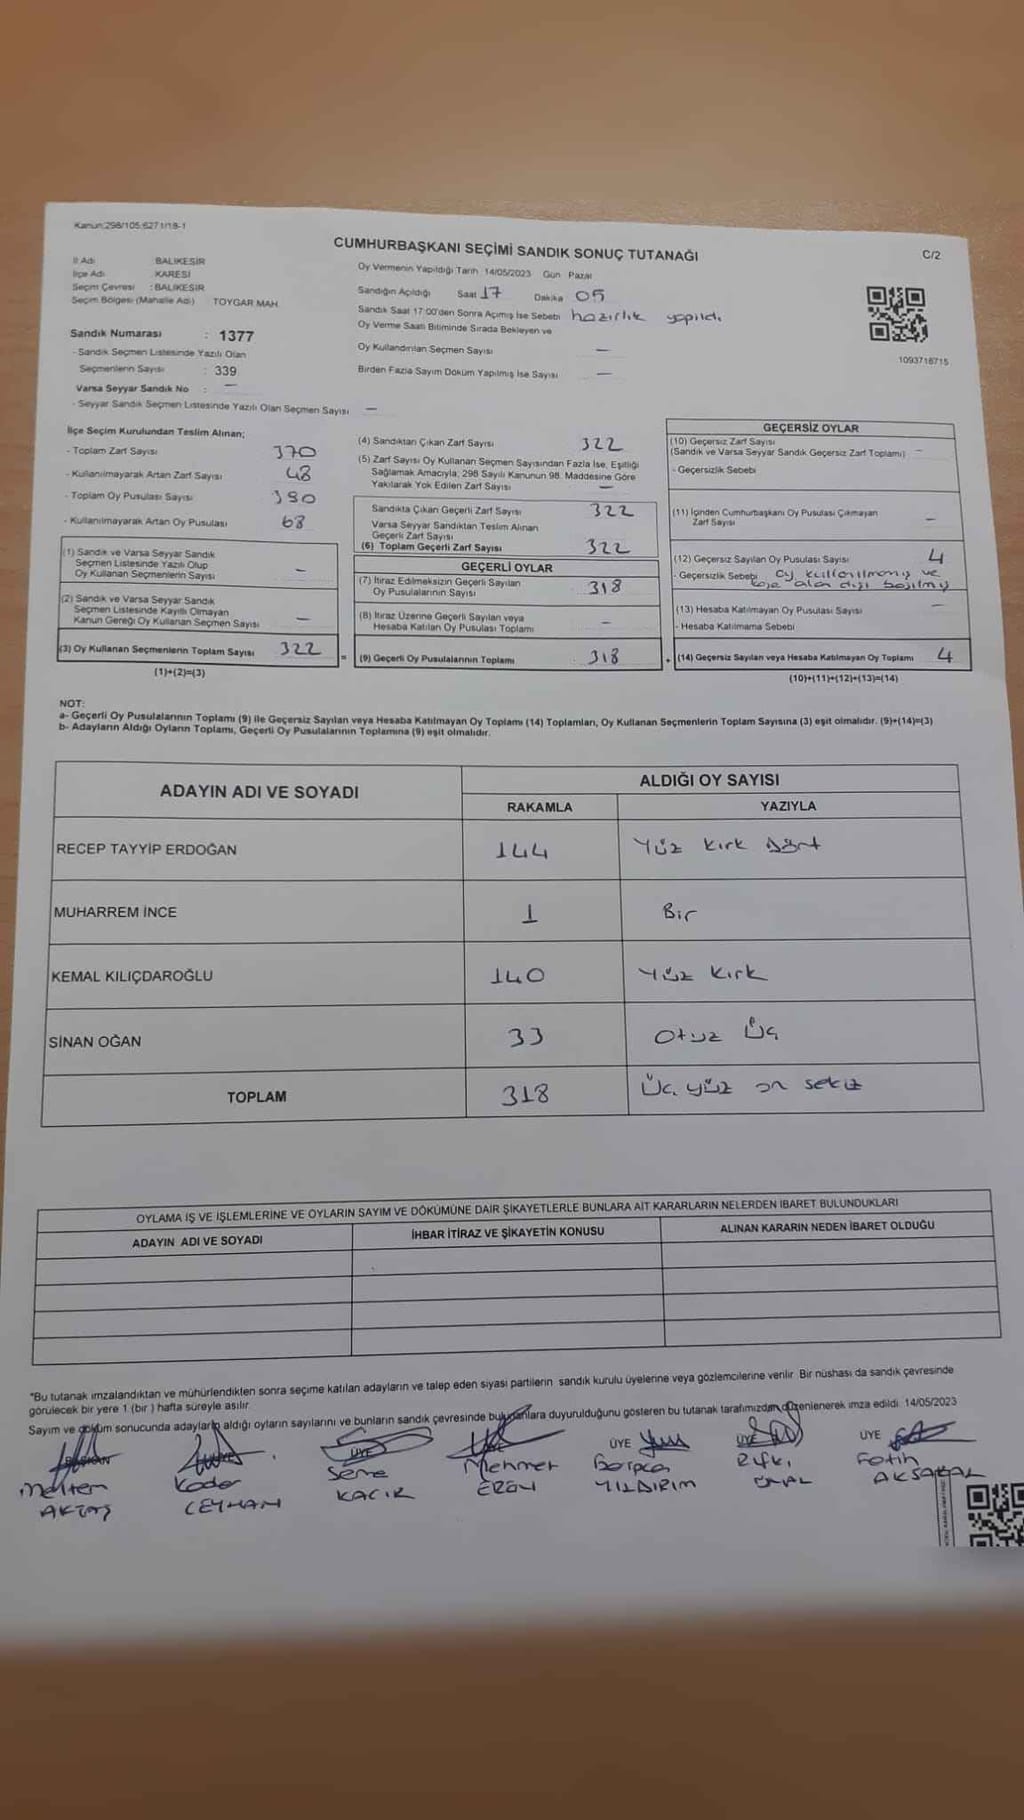 Kanun:298/105;6271/19-1
CUMHURBAŞKANI SEÇİMİ SANDIK SONUÇ TUTANAĞI
C/2
İl Adı BALIKESİR
İlçe Adı KARESİ
Seçim Çevresi : BALIKESİR
Seçim Bölgesi (Mahalle Adı) TOYGAR MAH.
Oy Vermenin Yapıldığı Tarih 14/05/2023 Gün Pazar
Sandığın Açıldığı Saat 17 Dakika 05
Sandık Saat 17:00'den Sonra Açılmış İse Sebebi hazırlık yapıldı
Oy Verme Saati Bitiminde Sırada Bekleyen ve
Oy Kullandırılan Seçmen Sayısı —
Birden Fazla Sayım Döküm Yapılmış İse Sayısı —
1093716715
Sandık Numarası : 1377
- Sandık Seçmen Listesinde Yazılı Olan
Seçmenlerin Sayısı : 339
Varsa Seyyar Sandık No : —
- Seyyar Sandık Seçmen Listesinde Yazılı Olan Seçmen Sayısı —
İlçe Seçim Kurulundan Teslim Alınan;
- Toplam Zarf Sayısı 370
- Kullanılmayarak Artan Zarf Sayısı 48
- Toplam Oy Pusulası Sayısı 390
- Kullanılmayarak Artan Oy Pusulası 68
(1) Sandık ve Varsa Seyyar Sandık
Seçmen Listesinde Yazılı Olup
Oy Kullanan Seçmenlerin Sayısı —
(2) Sandık ve Varsa Seyyar Sandık
Seçmen Listesinde Kayıtlı Olmayan
Kanun Gereği Oy Kullanan Seçmen Sayısı —
(3) Oy Kullanan Seçmenlerin Toplam Sayısı 322
(1)+(2)=(3)
(4) Sandıktan Çıkan Zarf Sayısı 322
(5) Zarf Sayısı Oy Kullanan Seçmen Sayısından Fazla İse, Eşitliği
Sağlamak Amacıyla, 298 Sayılı Kanunun 98. Maddesine Göre
Yakılarak Yok Edilen Zarf Sayısı —
Sandıkta Çıkan Geçerli Zarf Sayısı 322
Varsa Seyyar Sandıktan Teslim Alınan
Geçerli Zarf Sayısı
(6) Toplam Geçerli Zarf Sayısı 322
GEÇERLİ OYLAR
(7) İtiraz Edilmeksizin Geçerli Sayılan
Oy Pusulalarının Sayısı 318
(8) İtiraz Üzerine Geçerli Sayılan veya
Hesaba Katılan Oy Pusulası Toplamı —
= (9) Geçerli Oy Pusulalarının Toplamı 318
GEÇERSİZ OYLAR
(10) Geçersiz Zarf Sayısı
(Sandık ve Varsa Seyyar Sandık Geçersiz Zarf Toplamı) —
- Geçersizlik Sebebi
(11) İçinden Cumhurbaşkanı Oy Pusulası Çıkmayan
Zarf Sayısı —
(12) Geçersiz Sayılan Oy Pusulası Sayısı 4
- Geçersizlik Sebebi oy kullanılmamış ve
kaşe alan dışı basılmış
(13) Hesaba Katılmayan Oy Pusulası Sayısı —
- Hesaba Katılmama Sebebi
+ (14) Geçersiz Sayılan veya Hesaba Katılmayan Oy Toplamı 4
(10)+(11)+(12)+(13)=(14)
NOT:
a- Geçerli Oy Pusulalarının Toplamı (9) ile Geçersiz Sayılan veya Hesaba Katılmayan Oy Toplamı (14) Toplamları, Oy Kullanan Seçmenlerin Toplam Sayısına (3) eşit olmalıdır. (9)+(14)=(3)
b- Adayların Aldığı Oyların Toplamı, Geçerli Oy Pusulalarının Toplamına (9) eşit olmalıdır.
ADAYIN ADI VE SOYADI
ALDIĞI OY SAYISI
RAKAMLA YAZIYLA
RECEP TAYYİP ERDOĞAN 144 Yüz kırk dört
MUHARREM İNCE 1 Bir
KEMAL KILIÇDAROĞLU 140 Yüz kırk
SİNAN OĞAN 33 otuz üç
TOPLAM 318 üç yüz on sekiz
OYLAMA İŞ VE İŞLEMLERİNE VE OYLARIN SAYIM VE DÖKÜMÜNE DAİR ŞİKAYETLERLE BUNLARA AİT KARARLARIN NELERDEN İBARET BULUNDUKLARI
ADAYIN ADI VE SOYADI İHBAR İTİRAZ VE ŞİKAYETİN KONUSU ALINAN KARARIN NEDEN İBARET OLDUĞU
*Bu tutanak imzalandıktan ve mühürlendikten sonra seçime katılan adayların ve talep eden siyasi partilerin sandık kurulu üyelerine veya gözlemcilerine verilir. Bir nüshası da sandık çevresinde
görülecek bir yere 1 (bir ) hafta süreyle asılır.
Sayım ve döküm sonucunda adayların aldığı oyların sayılarını ve bunların sandık çevresinde bulunanlara duyurulduğunu gösteren bu tutanak tarafımızdan düzenlenerek imza edildi. 14/05/2023
BAŞKAN ÜYE ÜYE ÜYE ÜYE
Meltem Kader Sema Mehmet Rıfkı Fatih
AKTAŞ CEYHAN KACIR EREN YILDIRIM ÜNAL AKSAKAL